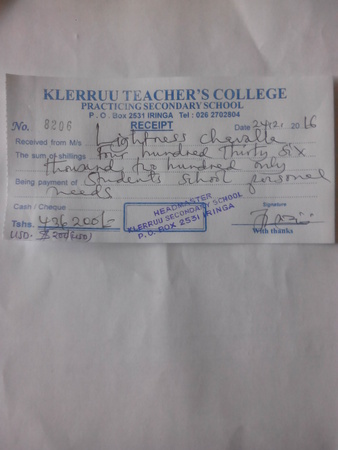 KLERRUU TEACHER'S COLLEGE
PRACTICING SECONDARY SCHOOL
P . O . Box 2531 IRINGA Tel : 026 2702804
No. 8206 RECEIPT Date 24/2/ 2016
Received from M/s Lightness Chavalla
The sum of shillings four hundred thirty six
thousand two hundred only
Being payment of Students school personal
needs
Cash / Cheque
Tshs. 436200/=
USD. $ 200
HEADMASTER
KLERRUU SECONDARY SCHOOL
P.O. BOX 2531 IRINGA
Signature
With thanks